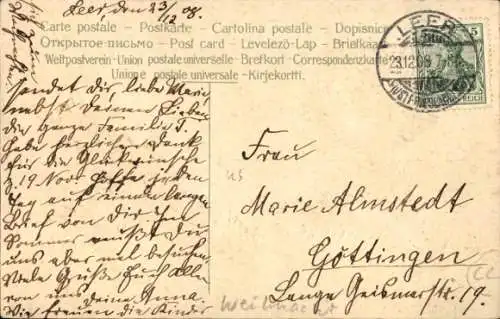 Leer, den 23/12 08.
Carte postale - Postkarte - Cartolina postale - Dopisnica
Открытое письмо - Post card - Levelező-Lap - Briefkaart
Weltpostverein - Union postale universelle - Brefkort - Correspondenzkarte
Unione postale universale - Kirjekortti.
LEER
23.12.08
(OSTFRIESLAND)
5
REICH
sendet dir liebe Marie
nebst deinen Lieben
die ganze Familie T.
Habe herzlichen Dank
für die Glückwünsche
z. 19 Nov. Hoffe jeden
Tag auf einen langen
Brief von dir. Im
Sommer mußt du
uns aber mal besuchen.
Viele Grüße Euch allen
von uns deine Anna.
Wie freuen die Kinder
Frau
Marie Almstedt
Göttingen
Lange Geismarstr. 19.
Weihnachten